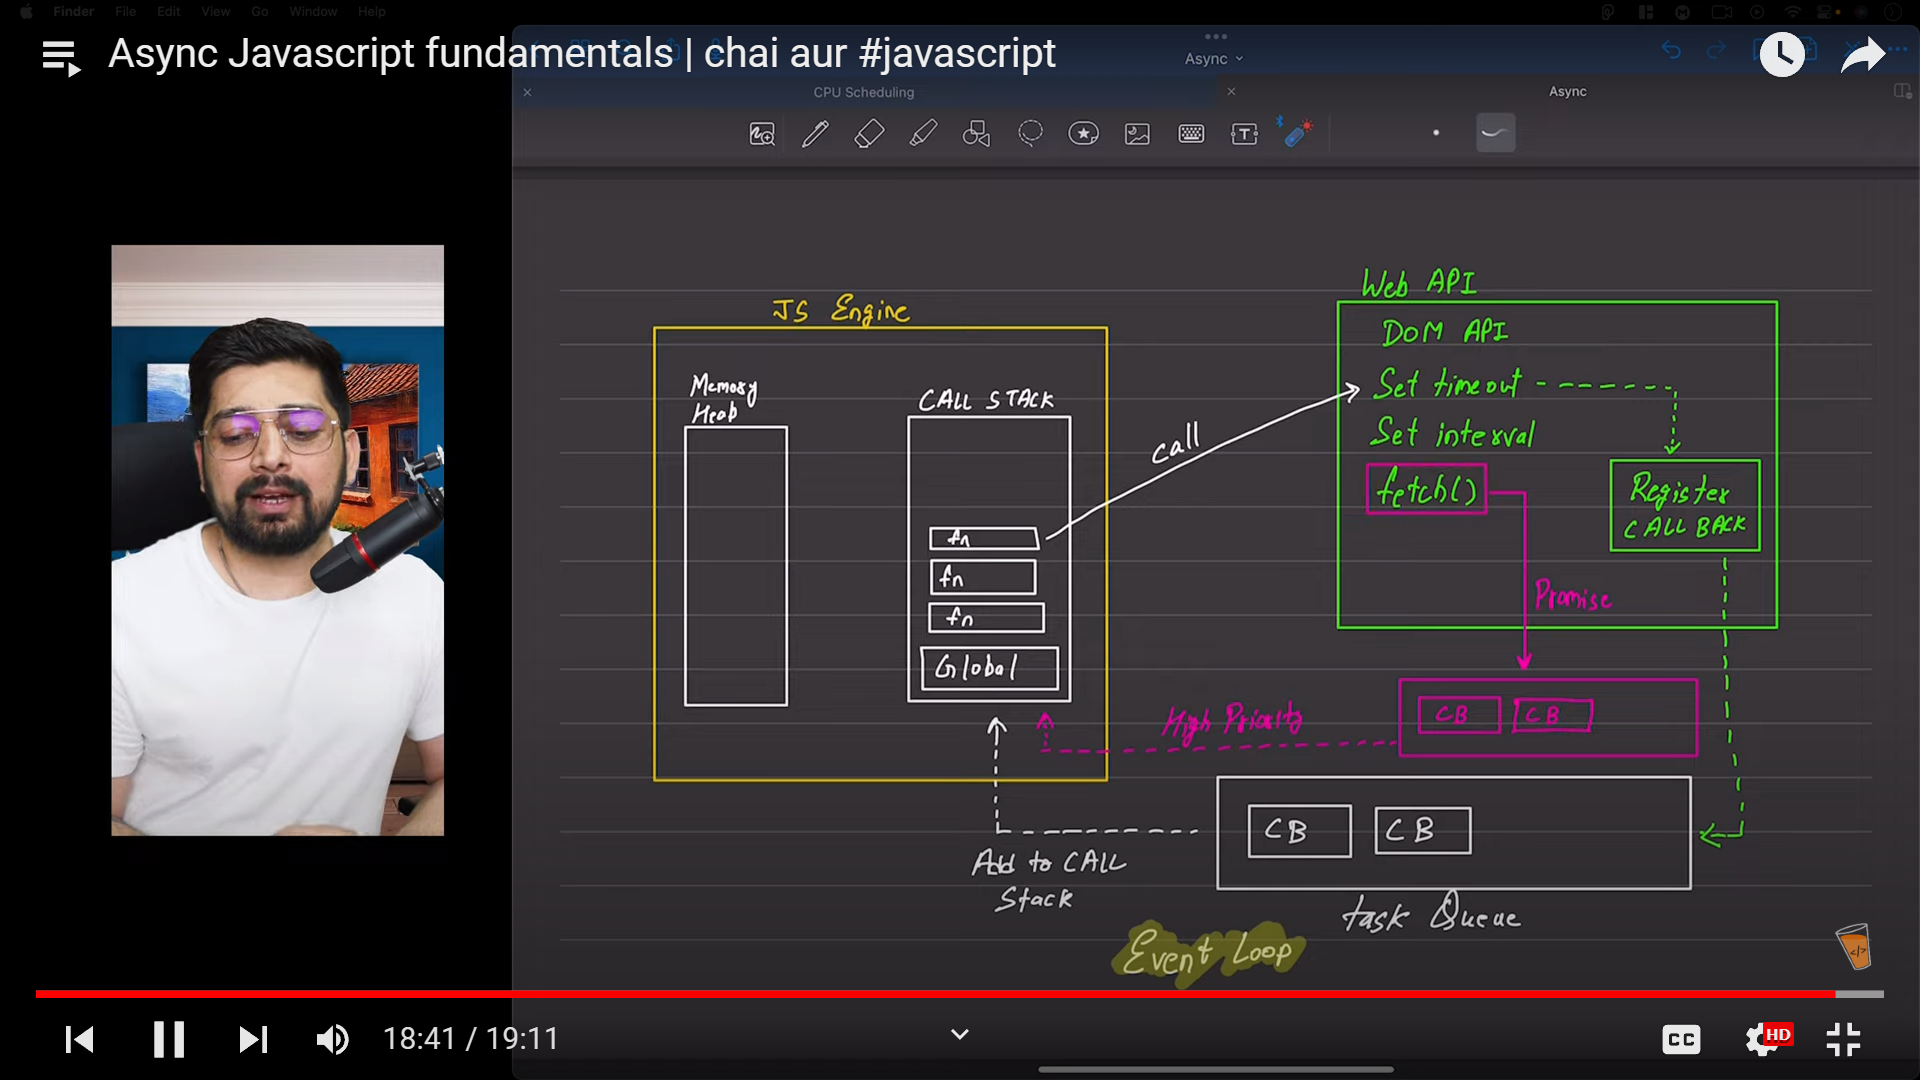 Finder File Edit View Go Window Help
Async Javascript fundamentals | chai aur #javascript
Async
CPU Scheduling
Async
JS Engine
Memory
Heap
CALL STACK
fn
fn
fn
Global
call
Web API
DOM API
Set timeout
Set interval
fetch()
Register
CALL BACK
Promise
High Priority
CB CB
CB CB
Add to CALL
Stack
task Queue
Event Loop
</>
18:41 / 19:11
CC
HD